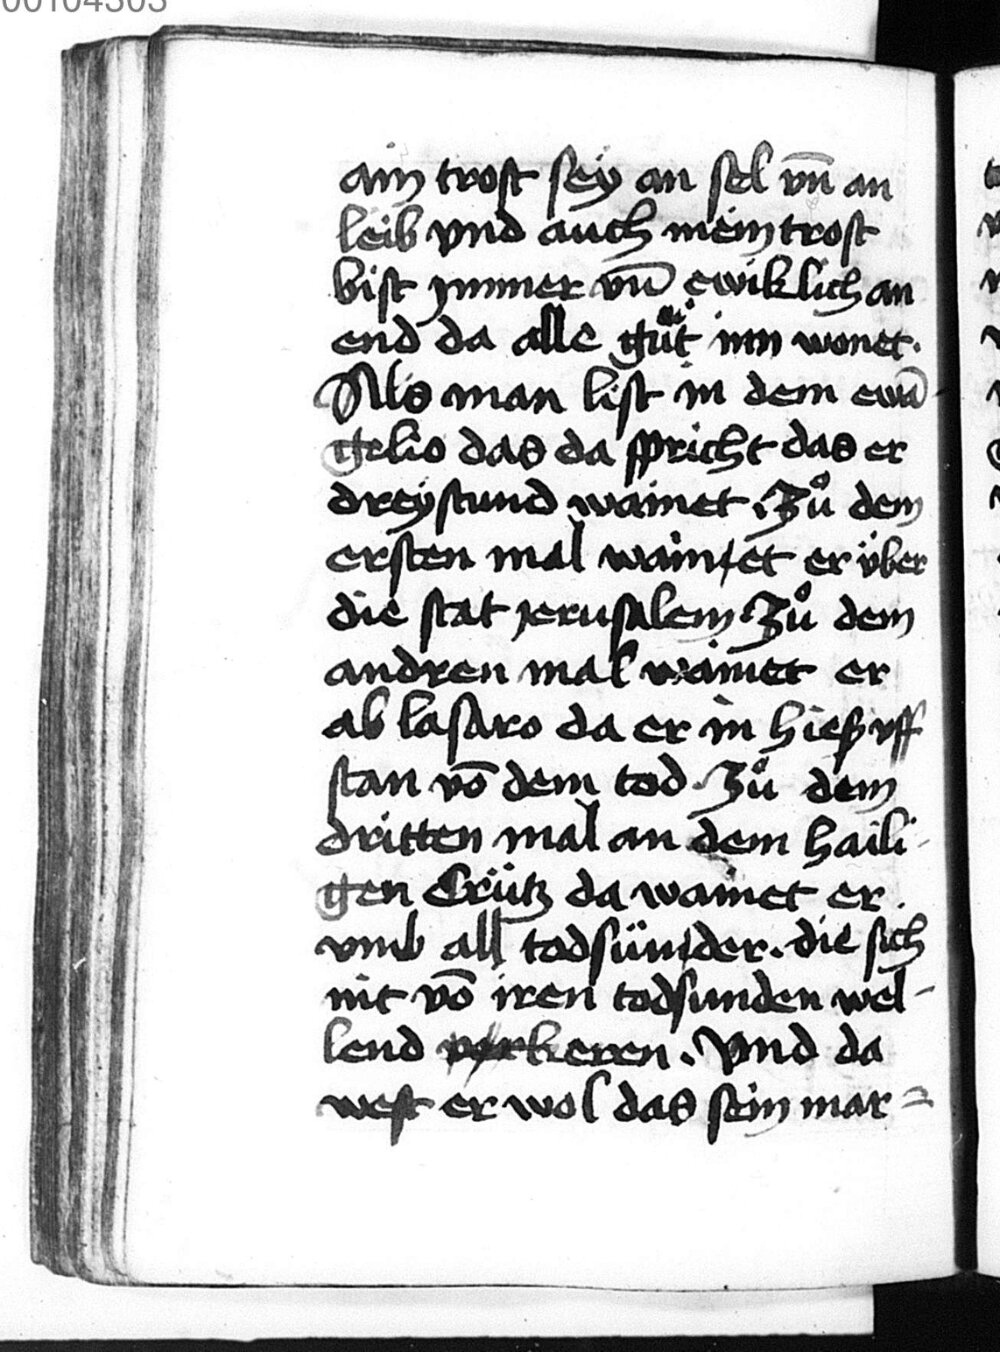 00104303
ain trost sey an sel vn̄ an
leib vnd auch mein trost
bist ymmer vn̄ ewiklich an
end da alle guͤt inn wonet.
Als man list in dem ewā
gelio das da spricht das er
dreystund wainet. Zuͦ dem
ersten mal wainet er über
die stat jerusalem. Zuͦ dem
andren mal wainet er
ab lasaro da er in hieß vff
stan vō dem tod. Zuͦ dem
dritten mal an dem haili-
gen Crütz da wainet er.
vmb all todsünder. die sich
nit vō iren todsunden wel-
lend keren. Vnd da
west er wol das sein mar=